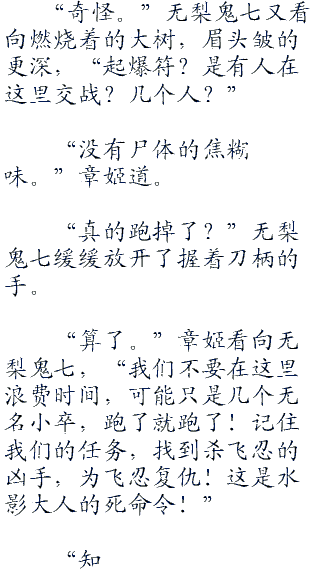 “奇怪。”无梨鬼七又看
向燃烧着的大树，眉头皱的
更深，“起爆符？是有人在
这里交战？几个人？”
“没有尸体的焦糊
味。”章姬道。
“真的跑掉了？”无梨
鬼七缓缓放开了握着刀柄的
手。
“算了。”章姬看向无
梨鬼七，“我们不要在这里
浪费时间，可能只是几个无
名小卒，跑了就跑了！记住
我们的任务，找到杀飞忍的
凶手，为飞忍复仇！这是水
影大人的死命令！”
“知